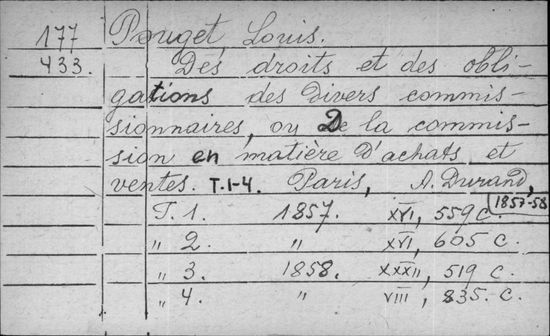 177 Pouget, Louis.
433. Des droits et des obli-
gations des divers commis-
sionnaires, ou De la commis-
sion en matière d'achats et
ventes. T.1-4. Paris, A. Durand,
1857-58
T. 1. 1857. XVI, 559 с.
„ 2. „ XVI, 605 с.
„ 3. 1858. XXXII, 519 с.
„ 4. „ VIII, 835. с.